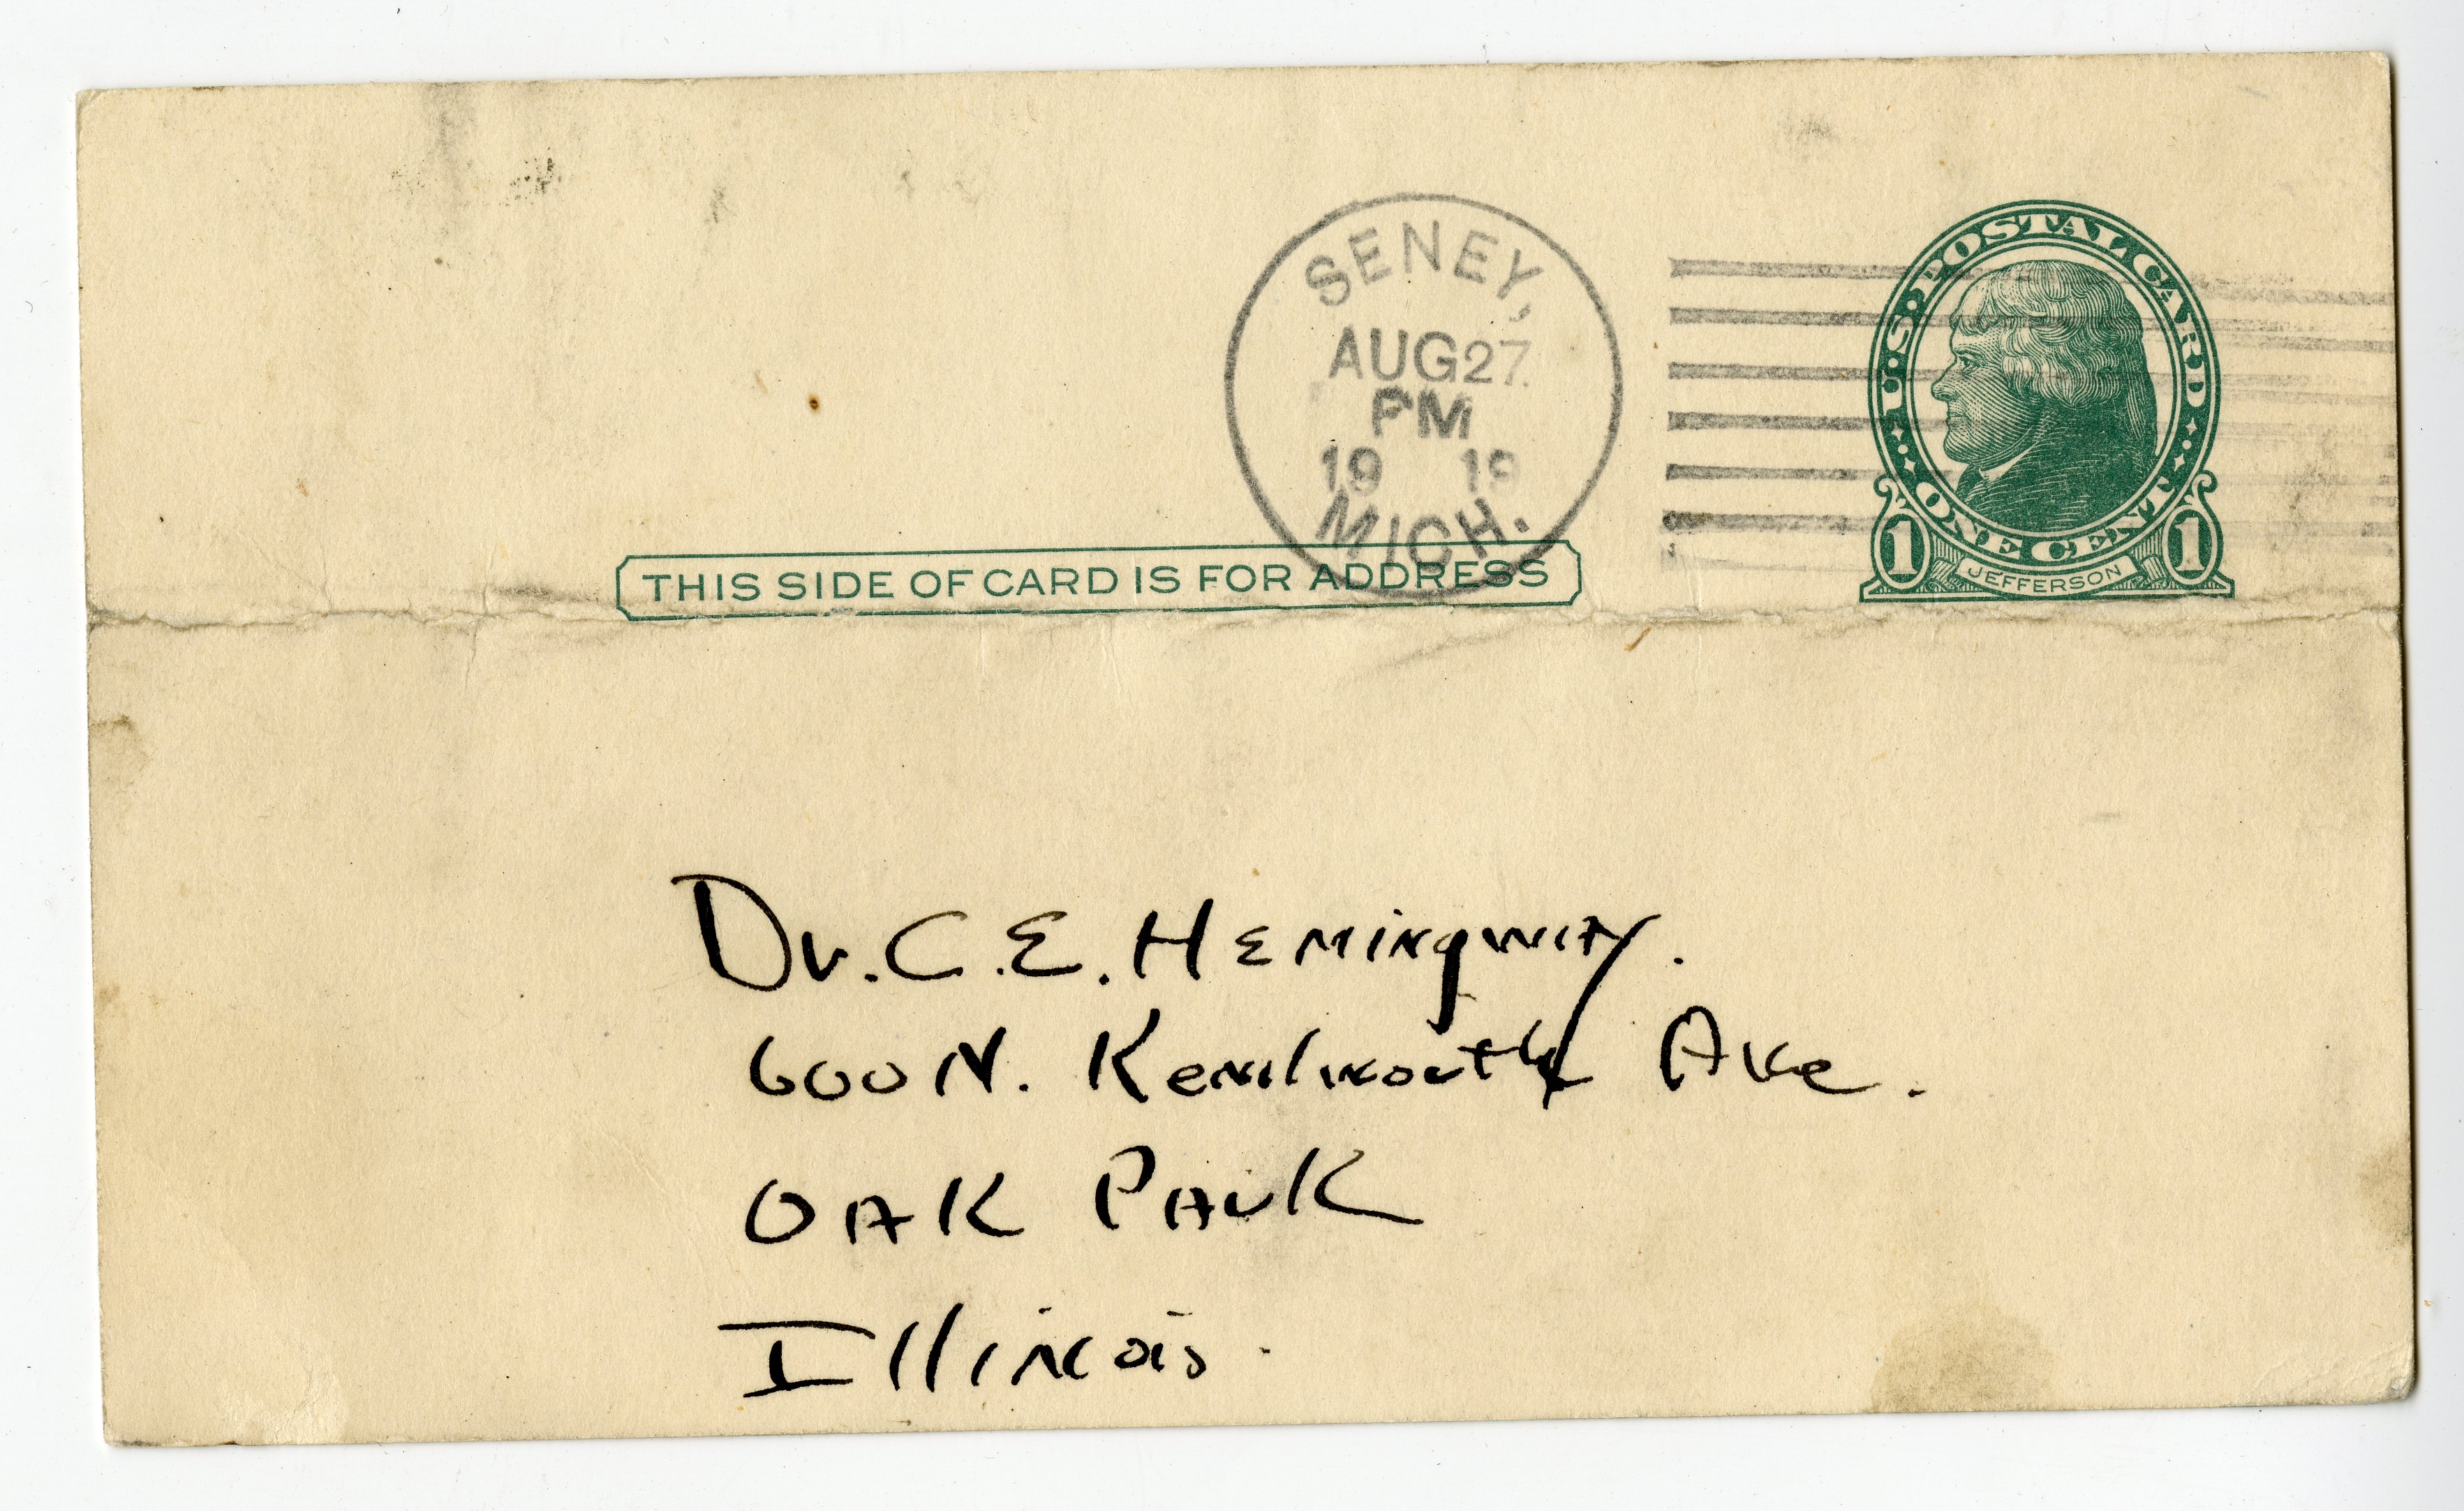 SENEY,
AUG 27
PM
19 19
MICH.
U.S. POSTAL CARD
ONE CENT
1 JEFFERSON 1
THIS SIDE OF CARD IS FOR ADDRESS
Dr. C.E. Hemingway.
600 N. Kenilworth Ave.
OAK PArK
Illinois.